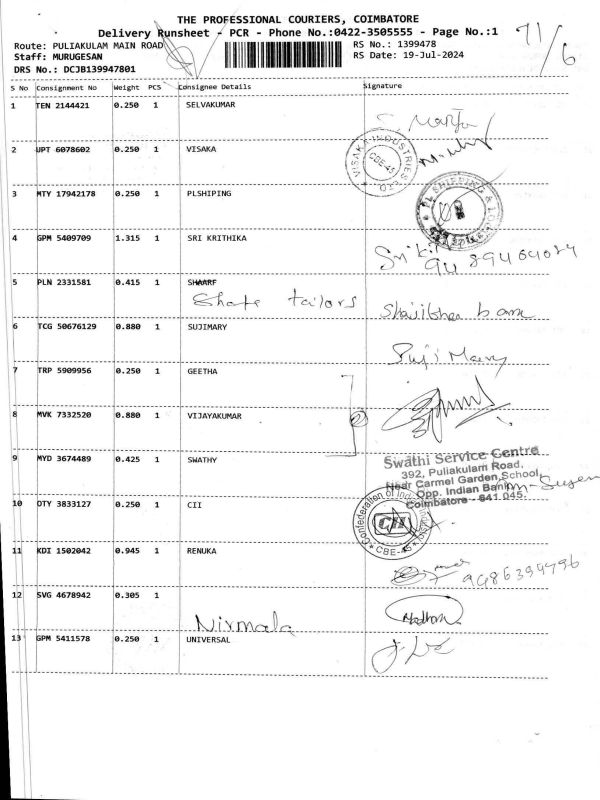 THE PROFESSIONAL COURIERS, COIMBATORE
Delivery Runsheet - PCR - Phone No.:0422-3505555 - Page No.:1
71/6
Route: PULIAKULAM MAIN ROAD RS No.: 1399478
Staff: MURUGESAN RS Date: 19-Jul-2024
DRS No.: DCJB139947801
S No Consignment No Weight PCS Consignee Details Signature
1 TEN 2144421 0.250 1 SELVAKUMAR
2 UPT 6078602 0.250 1 VISAKA
VISAKA INDUSTRIES LTD
CBE-45
3 MTY 17942178 0.250 1 PLSHIPING
PL SHIPPING &
4 GPM 5409709 1.315 1 SRI KRITHIKA
5 PLN 2331581 0.415 1 SHAARF
tailors
6 TCG 50676129 0.880 1 SUJIMARY
Suji Mary
7 TRP 5909956 0.250 1 GEETHA
8 MVK 7332520 0.880 1 VIJAYAKUMAR
9 MYD 3674489 0.425 1 SWATHY
Swathi Service Centre
392, Puliakulam Road,
Near Carmel Garden School,
Opp. Indian Bank
Coimbatore - 641 045.
10 OTY 3833127 0.250 1 CII
Confederation of Indian Industry
CII
CBE-45
11 KDI 1502042 0.945 1 RENUKA
9486394796
12 SVG 4678942 0.305 1
Nirmala
13 GPM 5411578 0.250 1 UNIVERSAL